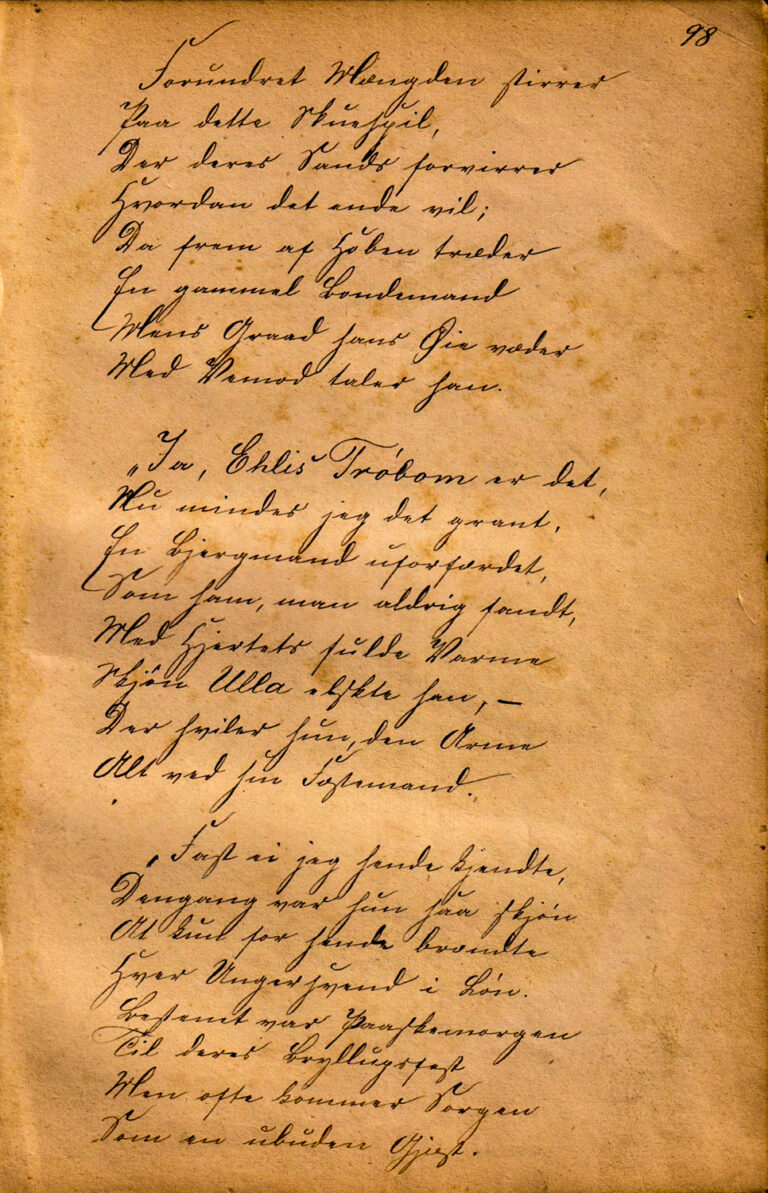 98
Forundret Mængden stirrer
Paa dette Skuespil,
Der deres Sands forvirrer
Hvordan det ende vil;
Da frem af Hoben træder
En gammel Bondemand
Mens Graad hans Øie væder
Med Vemod taler han.
„Ja, Ehlis Tröbom er det,
Nu mindes jeg det grant,
En Bjergmand uforfærdet,
Som ham, man aldrig fandt,
Med Hjertets fulde Varme
Skjön Ulla elskte han, —
Der hviler hun, den Arme
Alt ved sin Fæstemand.
„Fast ei jeg hende kjendte,
Dengang var hun saa skjön
At kun for hende brændte
Hver Ungersvend i Lön.
Bestemt var Paaskemorgen
Til deres Bryllupsfest
Men ofte kommer Sorgen
Som en ubuden Gjæst.